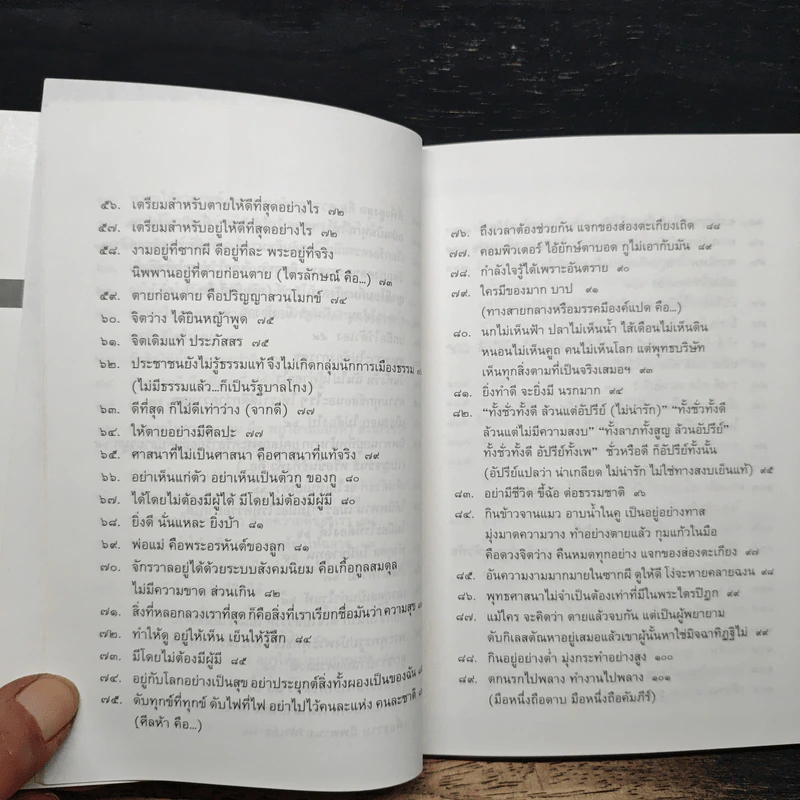 ๕๖. เตรียมสำหรับตายให้ดีที่สุดอย่างไร ๗๒
๕๗. เตรียมสำหรับอยู่ให้ดีที่สุดอย่างไร ๗๒
๕๘. งามอยู่ที่ซากผี ดีอยู่ที่ละ พระอยู่ที่จริง
นิพพานอยู่ที่ตายก่อนตาย (ไตรลักษณ์ คือ...) ๗๓
๕๙. ตายก่อนตาย คือปริญญาสวนโมกข์ ๗๔
๖๐. จิตว่าง ได้ยินหญ้าพูด ๗๕
๖๑. จิตเดิมแท้ ประภัสสร ๗๕
๖๒. ประชาชนยังไม่รู้ธรรมแท้ จึงไม่เกิดกลุ่มนักการเมืองธรรม
(ไม่มีธรรมแล้ว...ก็เป็นรัฐบาลโกง)
๖๓. ดีที่สุด ก็ไม่ดีเท่าว่าง (จากดี) ๗๗
๖๔. ให้ตายอย่างมีศิลปะ ๗๗
๖๕. ศาสนาที่ไม่เป็นศาสนา คือศาสนาที่แท้จริง ๗๙
๖๖. อย่าเห็นแก่ตัว อย่าเห็นเป็นตัวกู ของกู ๘๐
๖๗. ได้โดยไม่ต้องมีผู้ได้ มีโดยไม่ต้องมีผู้มี ๘๐
๖๘. ยิ่งดี นั่นแหละ ยิ่งบ้า ๘๑
๖๙. พ่อแม่ คือพระอรหันต์ของลูก ๘๑
๗๐. จักรวาลอยู่ได้ด้วยระบบสังคมนิยม คือเกื้อกูลสมดุล
ไม่มีความขาด ส่วนเกิน ๘๒
๗๑. สิ่งที่หลอกลวงเราที่สุด ก็คือสิ่งที่เราเรียกชื่อมันว่า ความสุข
๗๒. ทำให้ดู อยู่ให้เห็น เย็นให้รู้สึก ๘๔
๗๓. มีโดยไม่ต้องมีผู้มี ๘๕
๗๔. อยู่กับโลกอย่างเป็นสุข อย่าประยุกต์สิ่งทั้งผองเป็นของฉัน
๗๕. ดับทุกข์ที่ทุกข์ ดับไฟที่ไฟ อย่าไปไว้คนละแห่ง คนละชาติ
(ศีลห้า คือ...)
๗๖. ถึงเวลาต้องช่วยกัน แจกของส่องตะเกียงเถิด ๘๘
๗๗. คอมพิวเตอร์ ไอ้ยักษ์ตาบอด กูไม่เอากับมัน ๘๙
๗๘. กำลังใจรู้ได้เพราะอันตราย ๙๐
๗๙. ใครมีของมาก บาป ๙๑
(ทางสายกลางหรือมรรคมีองค์แปด คือ...)
๘๐. นกไม่เห็นฟ้า ปลาไม่เห็นน้ำ ไส้เดือนไม่เห็นดิน
หนอนไม่เห็นคูถ คนไม่เห็นโลก แต่พุทธบริษัท
เห็นทุกสิ่งตามที่เป็นจริงเสมอฯ ๙๓
๘๑. ยิ่งทำดี จะยิ่งมี นรกมาก ๙๔
๘๒. “ทั้งชั่วทั้งดี ล้วนแต่อัปรีย์ (ไม่น่ารัก)” “ทั้งชั่วทั้งดี
ล้วนแต่ไม่มีความสงบ” “ทั้งลาภทั้งสูญ ล้วนอัปรีย์”
“ทั้งชั่วทั้งดี อัปรีย์ทั้งเพ” ชั่วหรือดี ก็อัปรีย์ทั้งนั้น
(อัปรีย์แปลว่า น่าเกลียด ไม่น่ารัก ไม่ใช่ทางสงบเย็นแท้) ๙๕
๘๓. อย่ามีชีวิต ขี้ฉ้อ ต่อธรรมชาติ ๙๖
๘๔. กินข้าวจานแมว อาบน้ำในคู เป็นอยู่อย่างทาส
มุ่งมาดความว่าง ทำอย่างตายแล้ว กุมแก้วในมือ
คือดวงจิตว่าง คืนหมดทุกอย่าง แจกของส่องตะเกียง ๙๗
๘๕. อันความงามมากมายในซากผี ดูให้ดี โง่จะหายคลายฉงน ๙๘
๘๖. พุทธศาสนาไม่จำเป็นต้องเท่าที่มีในพระไตรปิฎก ๙๙
๘๗. แม้ใคร จะคิดว่า ตายแล้วจบกัน แต่เป็นผู้พยายาม
ดับกิเลสตัณหาอยู่เสมอแล้วเขาผู้นั้นหาใช่มิจฉาทิฏฐิไม่ ๙๙
๘๘. กินอยู่อย่างต่ำ มุ่งกระทำอย่างสูง ๑๐๐
๘๙. ตกนรกไปพลาง ทำงานไปพลาง ๑๐๑
(มือหนึ่งถือดาบ มือหนึ่งถือคัมภีร์)